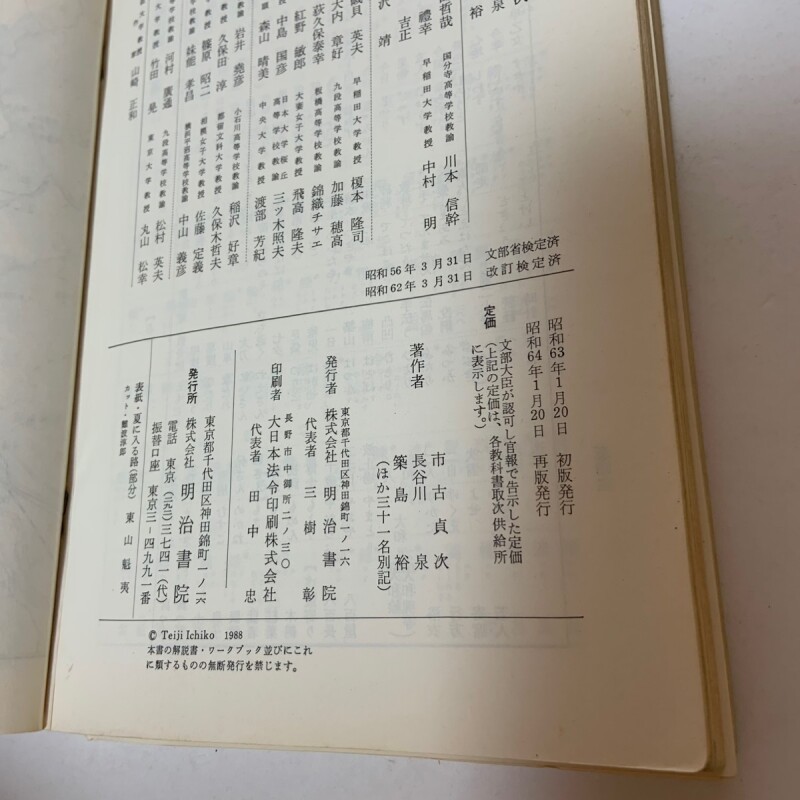 次
泉
裕
哲哉
国分寺高等学校教諭 川本 信幹
禮幸
早稲田大学教授 中村 明
吉正
沢 靖
磯貝 英夫
早稲田大学教授 榎本 隆司
大内 章好
九段高等学校教諭 加藤 穂高
荻久保泰幸
板橋高等学校教諭 錦織チサエ
紅野 敏郎
大妻女子大学教授 飛高 隆夫
中島 国彦
日本大学桜丘高等学校教諭 三ツ木照夫
森山 晴美
中央大学教授 渡部 芳紀
岩井 堯彦
小石川高等学校教諭 稲沢 好章
久保田 淳
都留文科大学教授 久保木哲夫
篠原 昭二
相模女子大学教授 佐藤 定義
妹能 孝昌
横浜平沼高等学校教諭 中山 義彦
河村 廣通
九段高等学校教諭 松村 英夫
竹田 晃
東京大学教授 丸山 松幸
山崎 正和
昭和56年3月31日 文部省検定済
昭和62年3月31日 改訂検定済
昭和63年1月20日 初版発行
昭和64年1月20日 再版発行
定価
文部大臣が認可し官報で告示した定価
(上記の定価は、各教科書取次供給所
に表示します。)
著作者
市古貞次
長谷川泉
築島裕
(ほか三十一名別記)
発行者
東京都千代田区神田錦町一ノ一六
株式会社 明治書院
代表者 三樹 彰
印刷者
長野市中御所二ノ三〇
大日本法令印刷株式会社
代表者 田中 忠
発行所
東京都千代田区神田錦町一ノ一六
株式会社 明治書院
電話 東京(二九二)三七四一(代)
振替口座 東京三-四九九一番
表紙・夏に入る路(部分) 東山魁夷
カット・難波淳郎
© Teiji Ichiko 1988
本書の解説書・ワークブック並びにこれ
に類するものの無断発行を禁じます。